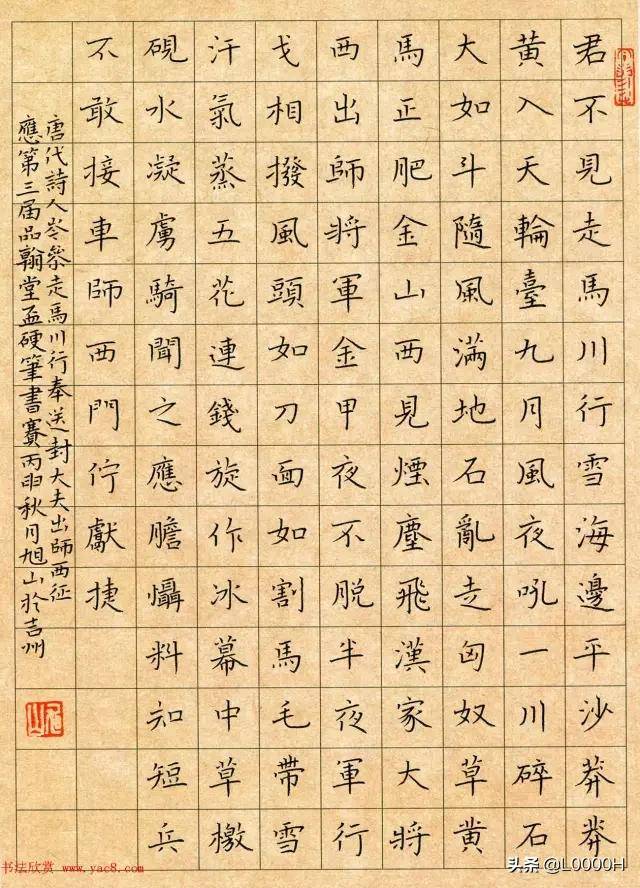 君不見走馬川行雪海邊平沙莽莽
黃入天輪臺九月風夜吼一川碎石
大如斗隨風滿地石亂走匈奴草黃
馬正肥金山西見煙塵飛漢家大將
西出師將軍金甲夜不脫半夜軍行
戈相撥風頭如刀面如割馬毛帶雪
汗氣蒸五花連錢旋作冰幕中草檄
硯水凝虜騎聞之應膽懾料知短兵
不敢接車師西門佇獻捷
唐代詩人岑參走馬川行奉送封大夫出師西征
應第三届品翰堂盃硬筆書賽丙申秋月旭山於吉州
书法欣赏 www.yac8.com
头条 @L0000H